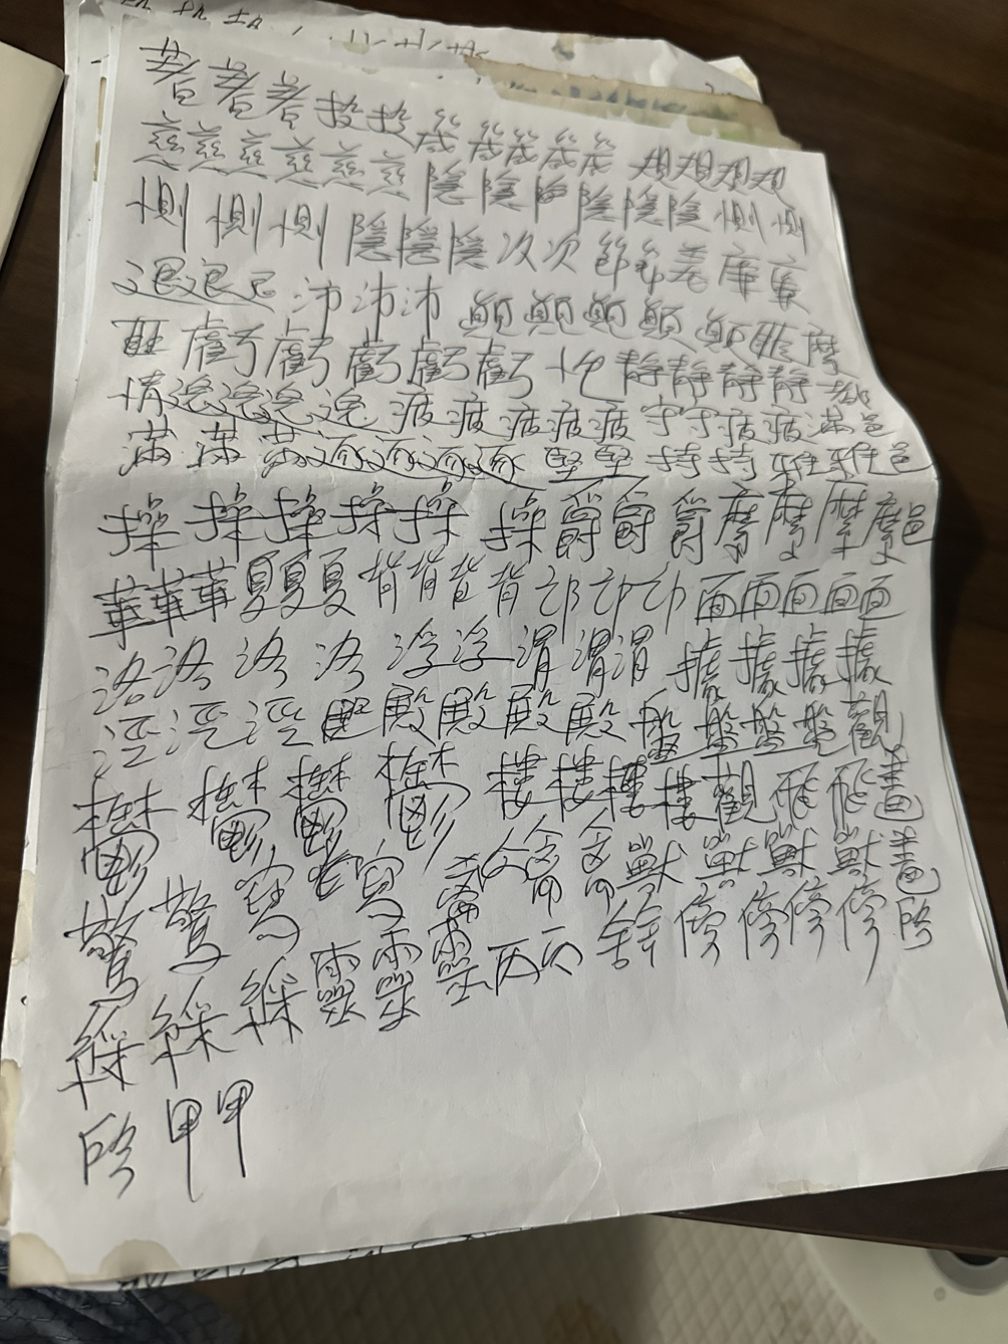 著著著投投箴箴箴箴箴規規規規
慈慈慈慈慈慈隱隱隱隱隱隱惻惻
惻惻惻隱隱隱次次節節義廉
退退沛沛沛顛顛顛顛顛匪
匪虧虧虧虧虧性靜靜靜靜
情逸逸逸逸疲疲疲疲疲守守疲疲滿邑
滿滿滿逐逐逐逐堅堅持持雅雅邑
操操操操操操爵爵爵摩摩摩摩邑
華華華夏夏夏背背背背邙邙邙面面面面面
洛洛洛洛浮浮渭渭渭據據據據
涇涇涇殿殿殿殿盤盤盤盤觀
鬱鬱鬱鬱樓樓樓樓觀飛飛畫
驚驚寫寫禽禽獸獸獸獸畫
綵綵綵靈靈靈丙丙舍傍傍傍傍啟
啟甲甲